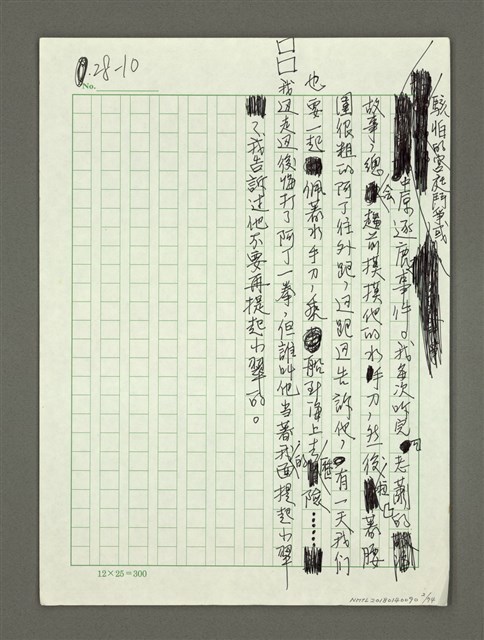 0.28-10
No.
駭怕的宮廷鬥爭或
中原逐鹿事件。我每次听完老蕭的
故事,總會趨前摸摸他的水手刀,然後拉著腰
圍很粗的阿丁往外跑,边跑边告訴他,有一天我們
也要一起佩著水手刀,乘船到海上去歷險……
我边走边後悔打了阿丁一拳,但誰叫他当著我的面提起小翠
了,我告訴过他不要再提起小翠的。
12×25=300
NMTL20180140090 2/74